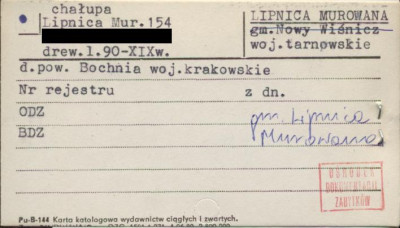 chałupa
Lipnica Mur.154
drew.l.90-XIXw.
LIPNICA MUROWANA
gm.Nowy Wiśnicz
woj.tarnowskie
d.pow. Bochnia woj.krakowskie
Nr rejestru z dn.
ODZ
BDZ
gm. Lipnica
Murowana
OŚRODEK
DOKUMENTACJI
ZABYTKÓW
Pu-B-144 Karta katalogowa wydawnictw ciągłych i zwartych.